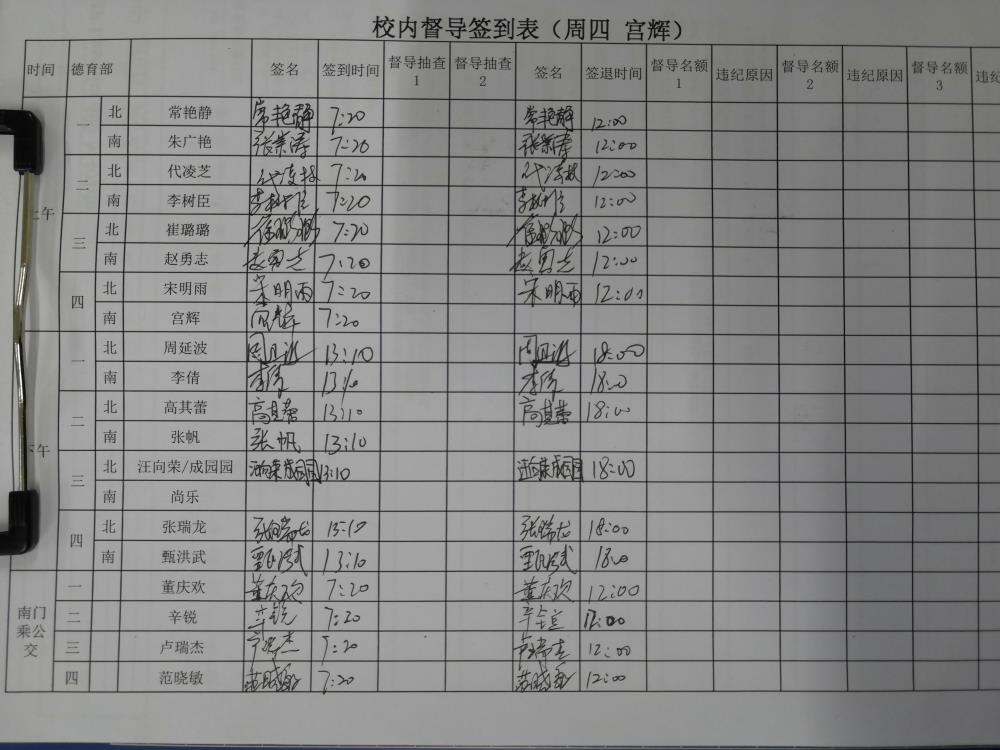 校内督导签到表（周四 宫辉）
时间 德育部 签名 签到时间 督导抽查1 督导抽查2 签名 签退时间 督导名额1 违纪原因 督导名额2 违纪原因 督导名额3 违纪
上午 一 北 常艳静 常艳静 7:20 常艳静 12:00
南 朱广艳 7:20 12:00
二 北 代凌芝 7:20 12:00
南 李树臣 李树臣 7:20 李树臣 12:00
三 北 崔璐璐 崔璐璐 7:20 崔璐璐 12:00
南 赵勇志 赵勇志 7:20 赵勇志 12:00
四 北 宋明雨 宋明雨 7:20 宋明雨 12:00
南 宫辉 宫辉 7:20
下午 一 北 周延波 13:10 18:00
南 李倩 李倩 13:10 李倩 18:00
二 北 高其蕾 高其蕾 13:10 高其蕾 18:00
南 张帆 张帆 13:10
三 北 汪向荣/成园园 汪向荣成园园 13:10 汪向荣成园园 18:00
南 尚乐
四 北 张瑞龙 张瑞龙 13:10 张瑞龙 18:00
南 甄洪武 甄洪武 13:10 甄洪武 18:00
南门乘公交 一 董庆欢 董庆欢 7:20 董庆欢 12:00
二 辛锐 辛锐 7:20 辛锐 12:00
三 卢瑞杰 卢瑞杰 7:20 卢瑞杰 12:00
四 范晓敏 范晓敏 7:20 范晓敏 12:00